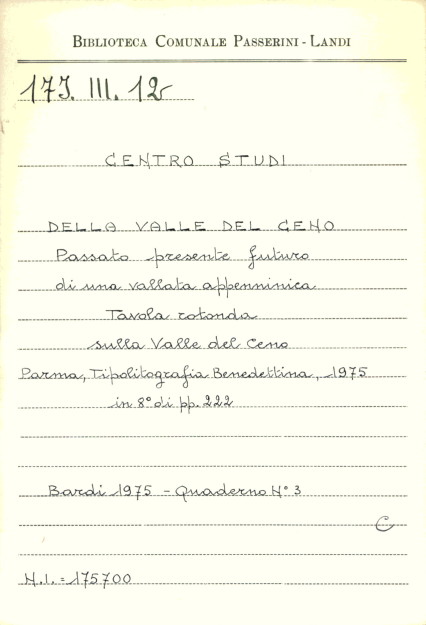 BIBLIOTECA COMUNALE PASSERINI - LANDI
17J. III. 12
CENTRO STUDI
DELLA VALLE DEL CENO
Passato presente futuro
di una vallata appenninica
Tavola rotonda
sulla Valle del Ceno
Parma, Tipolitografia Benedettina, 1975
in 8° di pp. 222
Bardi 1975 - Quaderno N° 3
C
N.I. = 175700